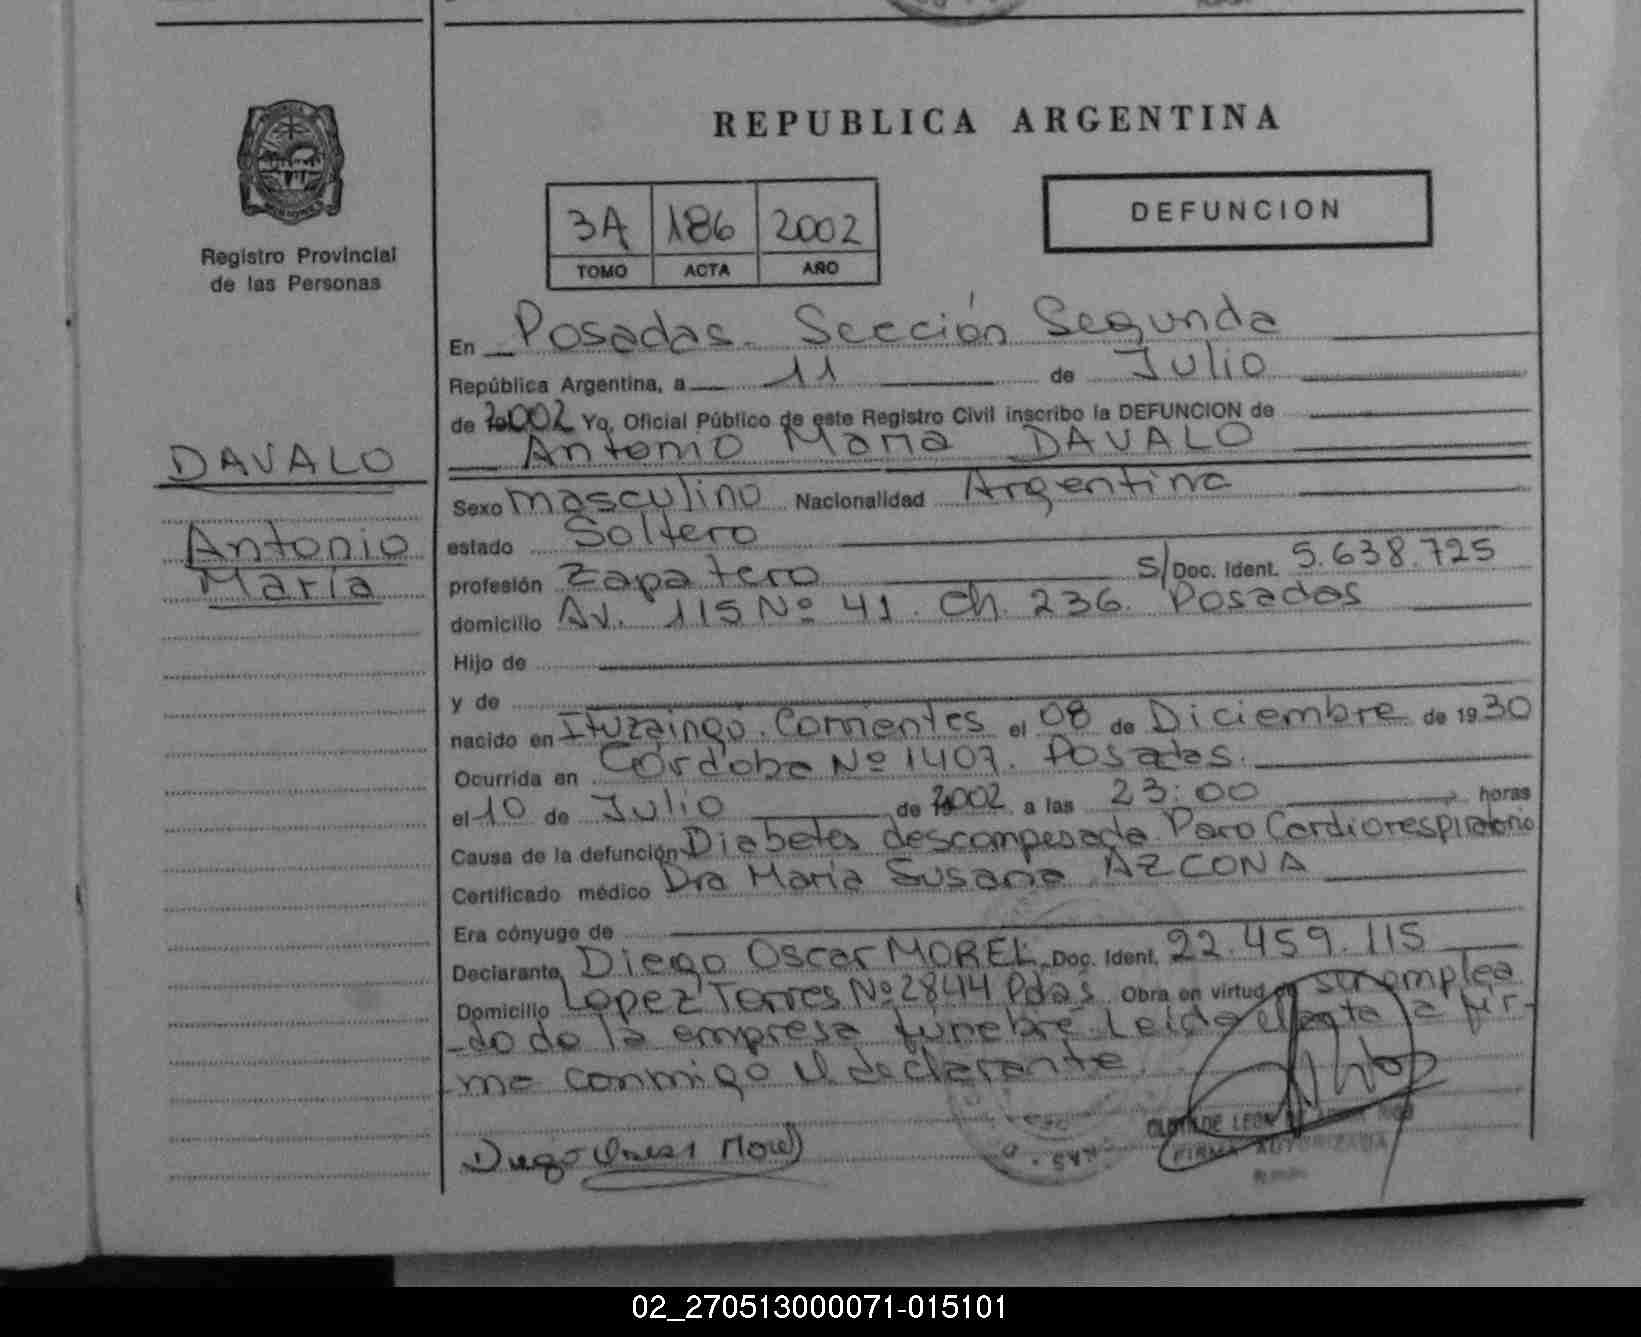 REPUBLICA ARGENTINA
Registro Provincial
de las Personas
3A 186 2002
TOMO ACTA AÑO
DEFUNCION
DAVALO
Antonio
María
En Posadas. Sección Segunda
República Argentina, a 11 de Julio
de 2002 Yo, Oficial Público de este Registro Civil inscribo la DEFUNCION de
Antonio Maria DAVALO
Sexo masculino Nacionalidad Argentina
estado Soltero
profesión Zapatero S/Doc. Ident. 5.638.725
domicilio Av. 115 Nº 41. Ch. 236. Posadas
Hijo de
y de
nacido en Ituzaingó. Corrientes el 08 de Diciembre de 1930
Ocurrida en Córdoba Nº 1407. Posadas.
el 10 de Julio de 2002 a las 23:00 horas
Causa de la defunción Diabetes descompesada Paro Cardiorespiratorio
Certificado médico Dra María Susana AZCONA
Era cónyuge de
Declarante Diego Oscar MOREL Doc. Ident. 22.459.115
Domicilio Lopez Torres Nº 2844 Pdas. Obra en virtud de ser emplea
do de la empresa fúnebre Leido el acta la fir-
ma conmigo el declarante
Diego Oscar Morel
LEON
FIRMA AUTORIZADA
02_270513000071-015101